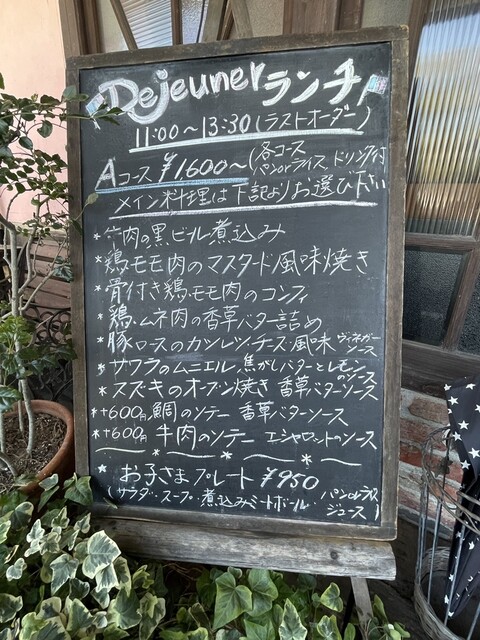 Dejeuner ランチ
11:00~13:30(ラストオーダー)
Aコース ¥1600~(各コース
パンorライス、ドリンク付
メイン料理は下記よりお選び下さい
*牛肉の黒ビール煮込み
*鶏モモ肉のマスタード風味焼き
*骨付き鶏モモ肉のコンフィ
*鶏ムネ肉の香草バター詰め
*豚ロースのカツレツ・チーズ風味 ヴィネガーソース
*サワラのムニエル 焦がしバターとレモンのソース
*スズキのオーブン焼き 香草バターソース
*+600円鯛のソテー 香草バターソース
*+600円 牛肉のソテー エシャロットのソース
*お子さまプレート ¥950
(サラダ・スープ・煮込みミートボール パンorライス
ジュース)